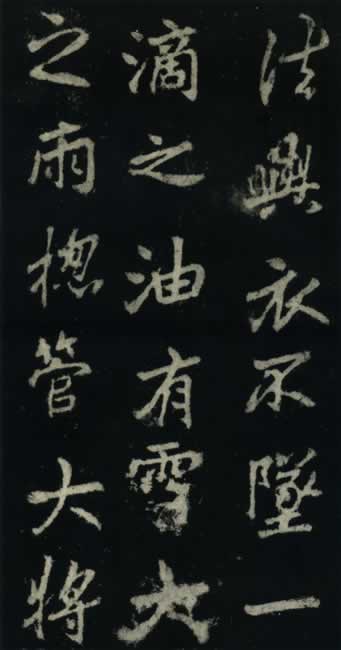 法與衣不墜一
滴之油有雪大
之雨揔管大將